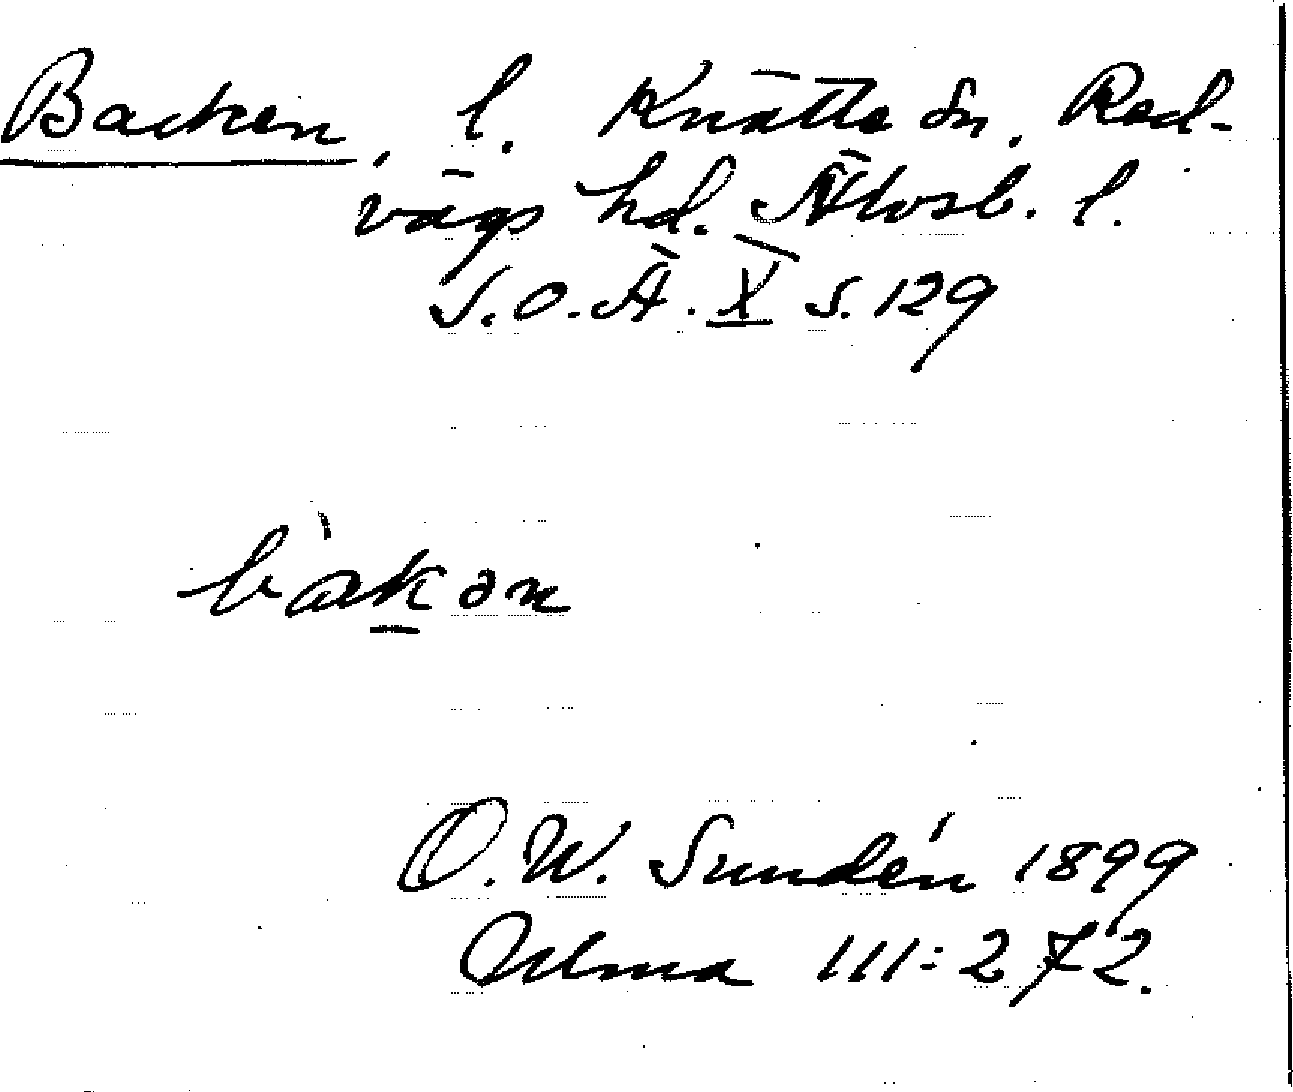 Backen, l. Knätte sn, Red-
vägs hd. Älvsb. l.
S.O.Ä. X s. 129
bàkən
O.W. Sundén 1899
Ulma 111:272.